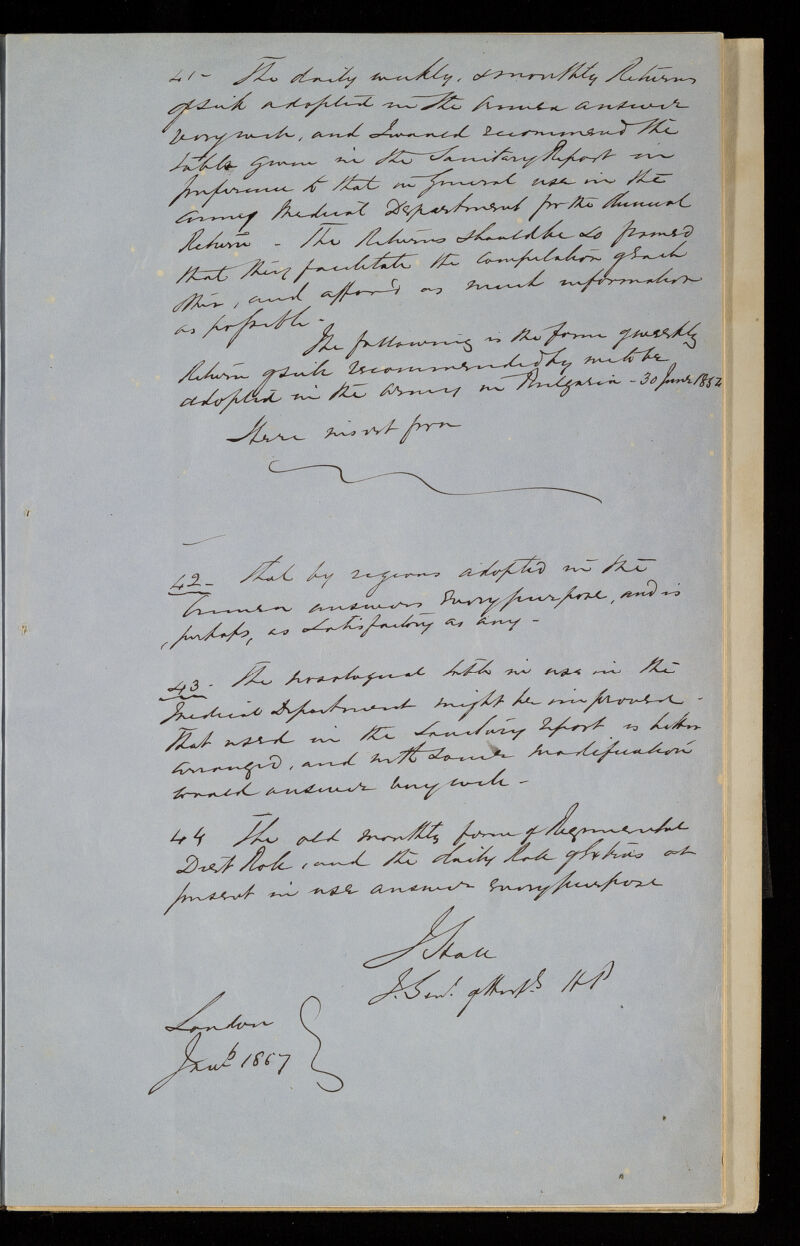 41 - The daily weekly, & monthly Returns
of sick adopted in the Crimea answer
very well, and I would recommend the
table given in the Sanitary Report in
preference to that in General use in the
Army Medical Department for the Annual
Return - The Returns should be so framed
that they facilitate the compilation of each
other, and afford as much information
as possible -
The following is the form of weekly
Return of sick recommended by me to be
adopted in the Army in Bulgaria - 30 June 1854
Here insert form
42 - That by regions adopted in the
Crimea answers every purpose, and is
, perhaps, as satisfactory as any -
43 - The nosological table in use in the
Medical Department might be improved -
That used in the Sanitary report is better
arranged, and with some modification
would answer very well -
44 The old monthly form of Regimental
Diet Role, and the daily Role of Extras at
present in use answer every purpose
J Hall
I. Genl. of Hospls HP
London
1857